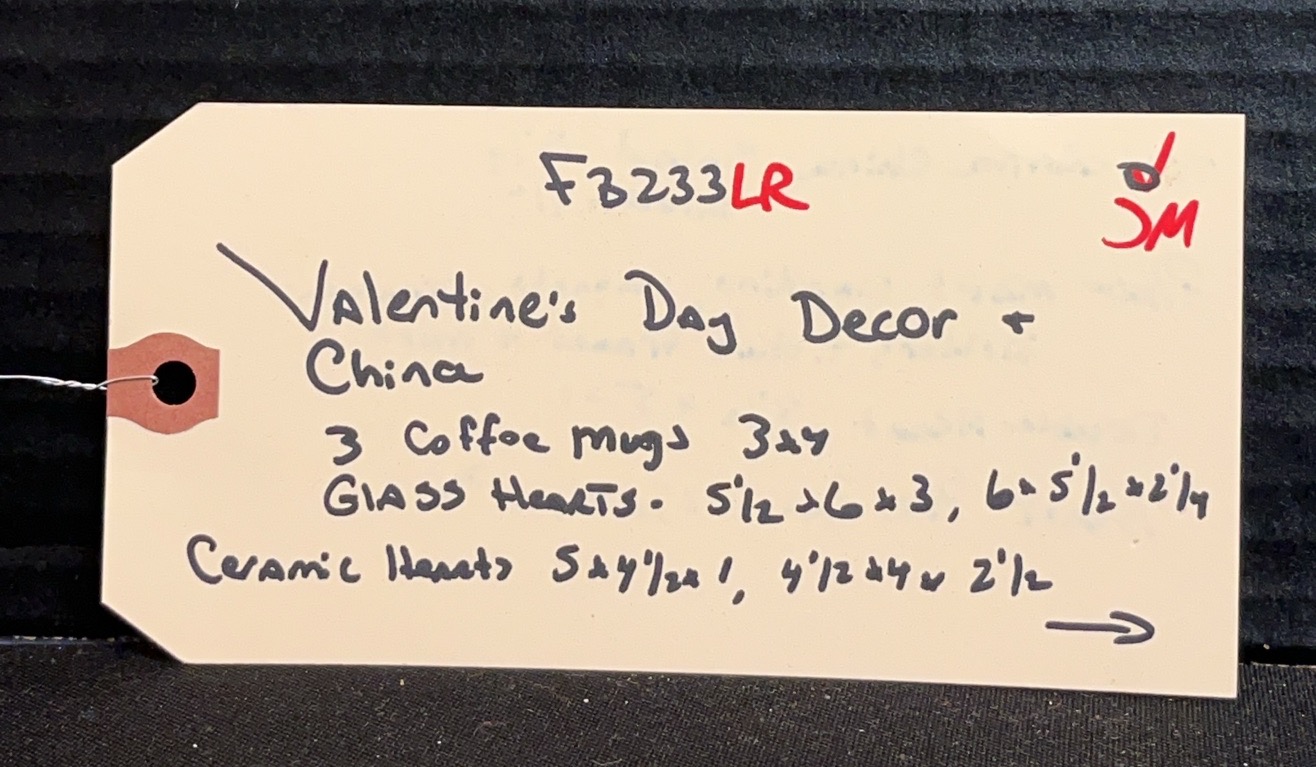 FB233LR
JM
Valentine's Day Decor +
China
3 Coffee Mugs 3x4
Glass Hearts. 5 1/2 x 6 x 3, 6 x 5 1/2 x 2 1/4
Ceramic Hearts 5 x 4 1/2 x 1, 4 1/2 x 4 x 2 1/2
→